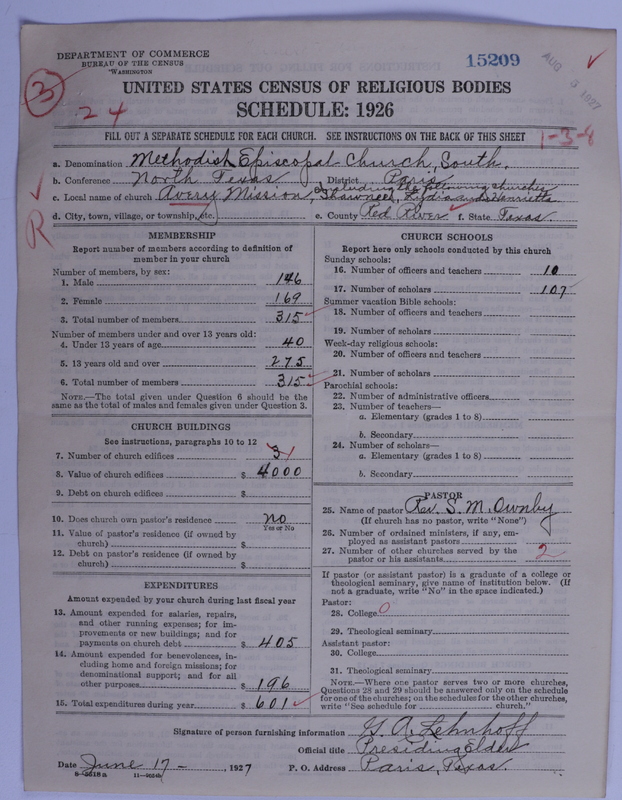 DEPARTMENT OF COMMERCE
BUREAU OF THE CENSUS
WASHINGTON
15209
AUG 3 1927
3
24
UNITED STATES CENSUS OF RELIGIOUS BODIES
SCHEDULE: 1926
FILL OUT A SEPARATE SCHEDULE FOR EACH CHURCH. SEE INSTRUCTIONS ON THE BACK OF THIS SHEET
1-3-8
a. Denomination Methodist Episcopal Church, South.
b. Conference North Texas District Paris
including the following churches
c. Local name of church Avery Mission, Shawnee, Lydia and Henrietta
d. City, town, village, or township, etc. e. County Red River f. State Texas.
R
MEMBERSHIP
Report number of members according to definition of
member in your church
Number of members, by sex:
1. Male 146
2. Female 169
3. Total number of members 315
Number of members under and over 13 years old:
4. Under 13 years of age 40
5. 13 years old and over 275
6. Total number of members 315
NOTE.—The total given under Question 6 should be the
same as the total of males and females given under Question 3.
CHURCH BUILDINGS
See instructions, paragraphs 10 to 12
7. Number of church edifices 3 1
8. Value of church edifices $ 4000
9. Debt on church edifices $
10. Does church own pastor's residence no
Yes or No
11. Value of pastor's residence (if owned by
church) $
12. Debt on pastor's residence (if owned by
church) $
EXPENDITURES
Amount expended by your church during last fiscal year
13. Amount expended for salaries, repairs,
and other running expenses; for im-
provements or new buildings; and for
payments on church debt $ 405
14. Amount expended for benevolences, in-
cluding home and foreign missions; for
denominational support; and for all
other purposes $ 196
15. Total expenditures during year $ 601
CHURCH SCHOOLS
Report here only schools conducted by this church
Sunday schools:
16. Number of officers and teachers 10
17. Number of scholars 107
Summer vacation Bible schools:
18. Number of officers and teachers
19. Number of scholars
Week-day religious schools:
20. Number of officers and teachers
21. Number of scholars
Parochial schools:
22. Number of administrative officers
23. Number of teachers—
a. Elementary (grades 1 to 8)
b. Secondary
24. Number of scholars—
a. Elementary (grades 1 to 8)
b. Secondary
PASTOR
25. Name of pastor Rev. S. M. Ownby
(If church has no pastor, write "None")
26. Number of ordained ministers, if any, em-
ployed as assistant pastors
27. Number of other churches served by the
pastor or his assistants 2
If pastor (or assistant pastor) is a graduate of a college or
theological seminary, give name of institution below. (If
not a graduate, write "No" in the space indicated.)
Pastor:
28. College 0
29. Theological seminary
Assistant pastor:
30. College
31. Theological seminary
NOTE.—Where one pastor serves two or more churches,
Questions 28 and 29 should be answered only on the schedule
for one of the churches; on the schedules for the other churches,
write "See schedule for church."
Signature of person furnishing information G. A. Lehnhoff
Official title Presiding Elder
Date June 17-, 1927 P. O. Address Paris, Texas.